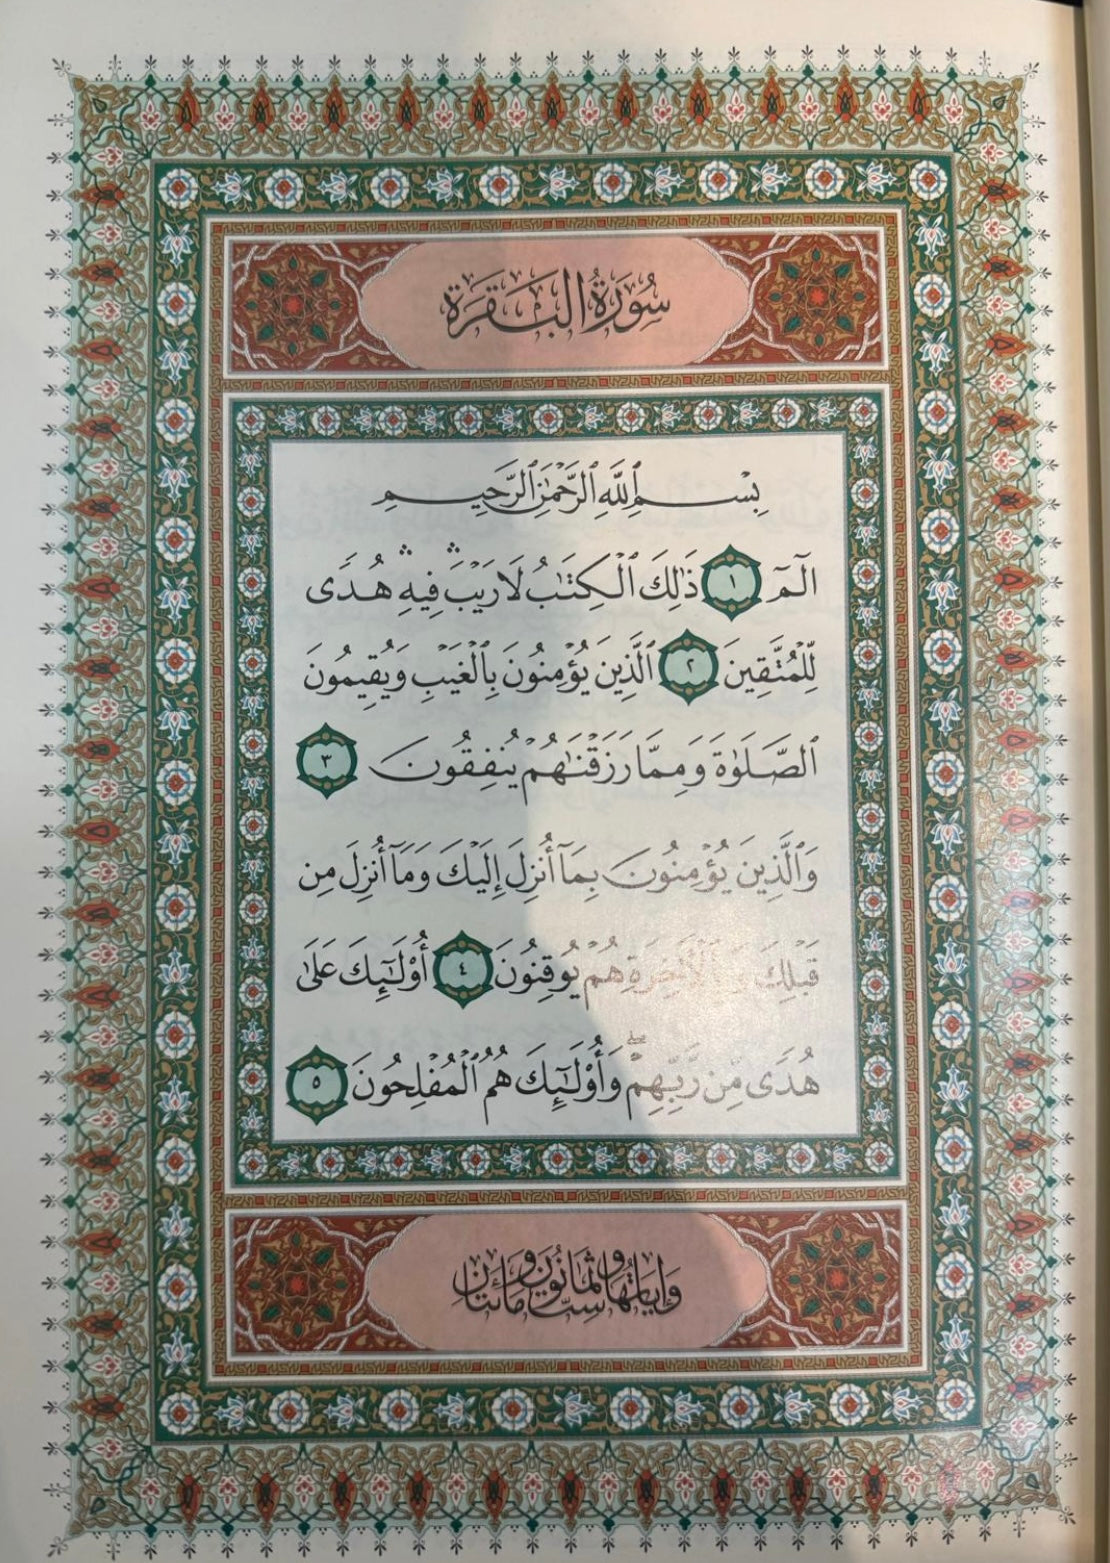 سُورَةُ الْبَقَرَةِ
بِسْمِ ٱللَّهِ ٱلرَّحْمَٰنِ ٱلرَّحِيمِ
الٓمٓ ١ ذَٰلِكَ ٱلْكِتَٰبُ لَا رَيْبَ ۛ فِيهِ ۛ هُدًى
لِّلْمُتَّقِينَ ٢ ٱلَّذِينَ يُؤْمِنُونَ بِٱلْغَيْبِ وَيُقِيمُونَ
ٱلصَّلَوٰةَ وَمِمَّا رَزَقْنَٰهُمْ يُنفِقُونَ ٣
وَٱلَّذِينَ يُؤْمِنُونَ بِمَآ أُنزِلَ إِلَيْكَ وَمَآ أُنزِلَ مِن
قَبْلِكَ وَبِٱلْأٓخِرَةِ هُمْ يُوقِنُونَ ٤ أُو۟لَٰٓئِكَ عَلَىٰ
هُدًى مِّن رَّبِّهِمْ ۖ وَأُو۟لَٰٓئِكَ هُمُ ٱلْمُفْلِحُونَ ٥
وَآيَاتُهَا سِتٌّ وَثَمَانُونَ وَمِائَتَانِ